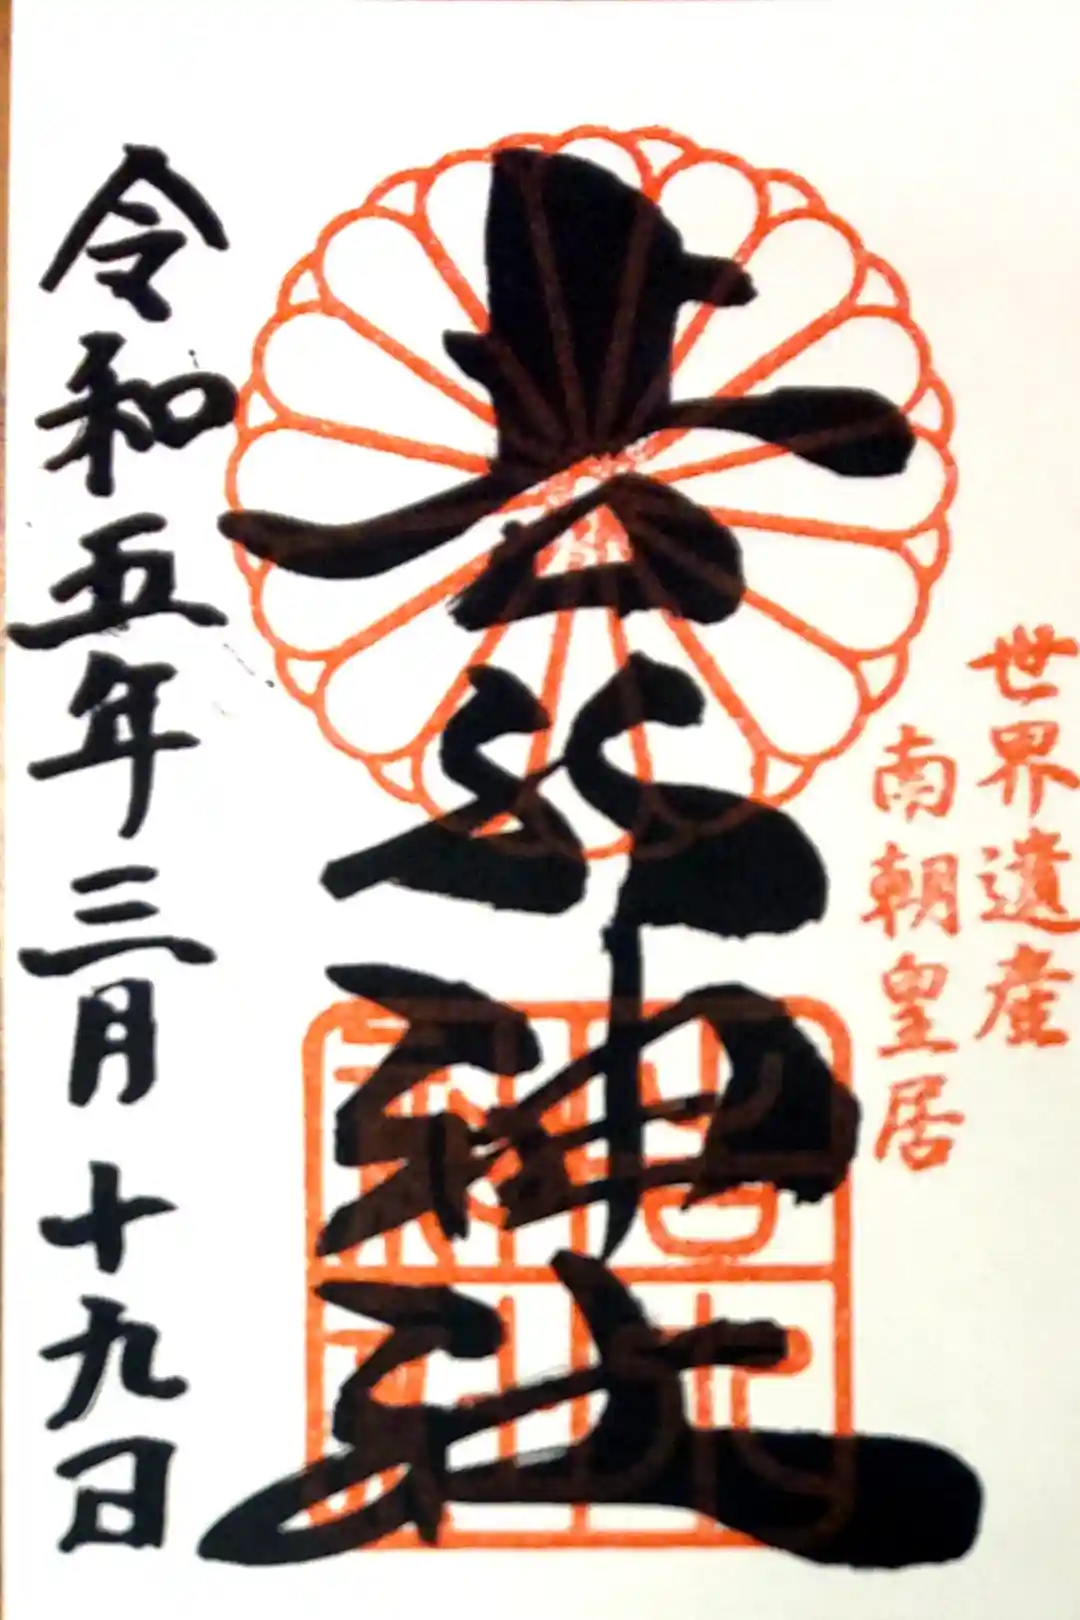 世界遺産
南朝皇居
吉水神社
令和五年三月十九日